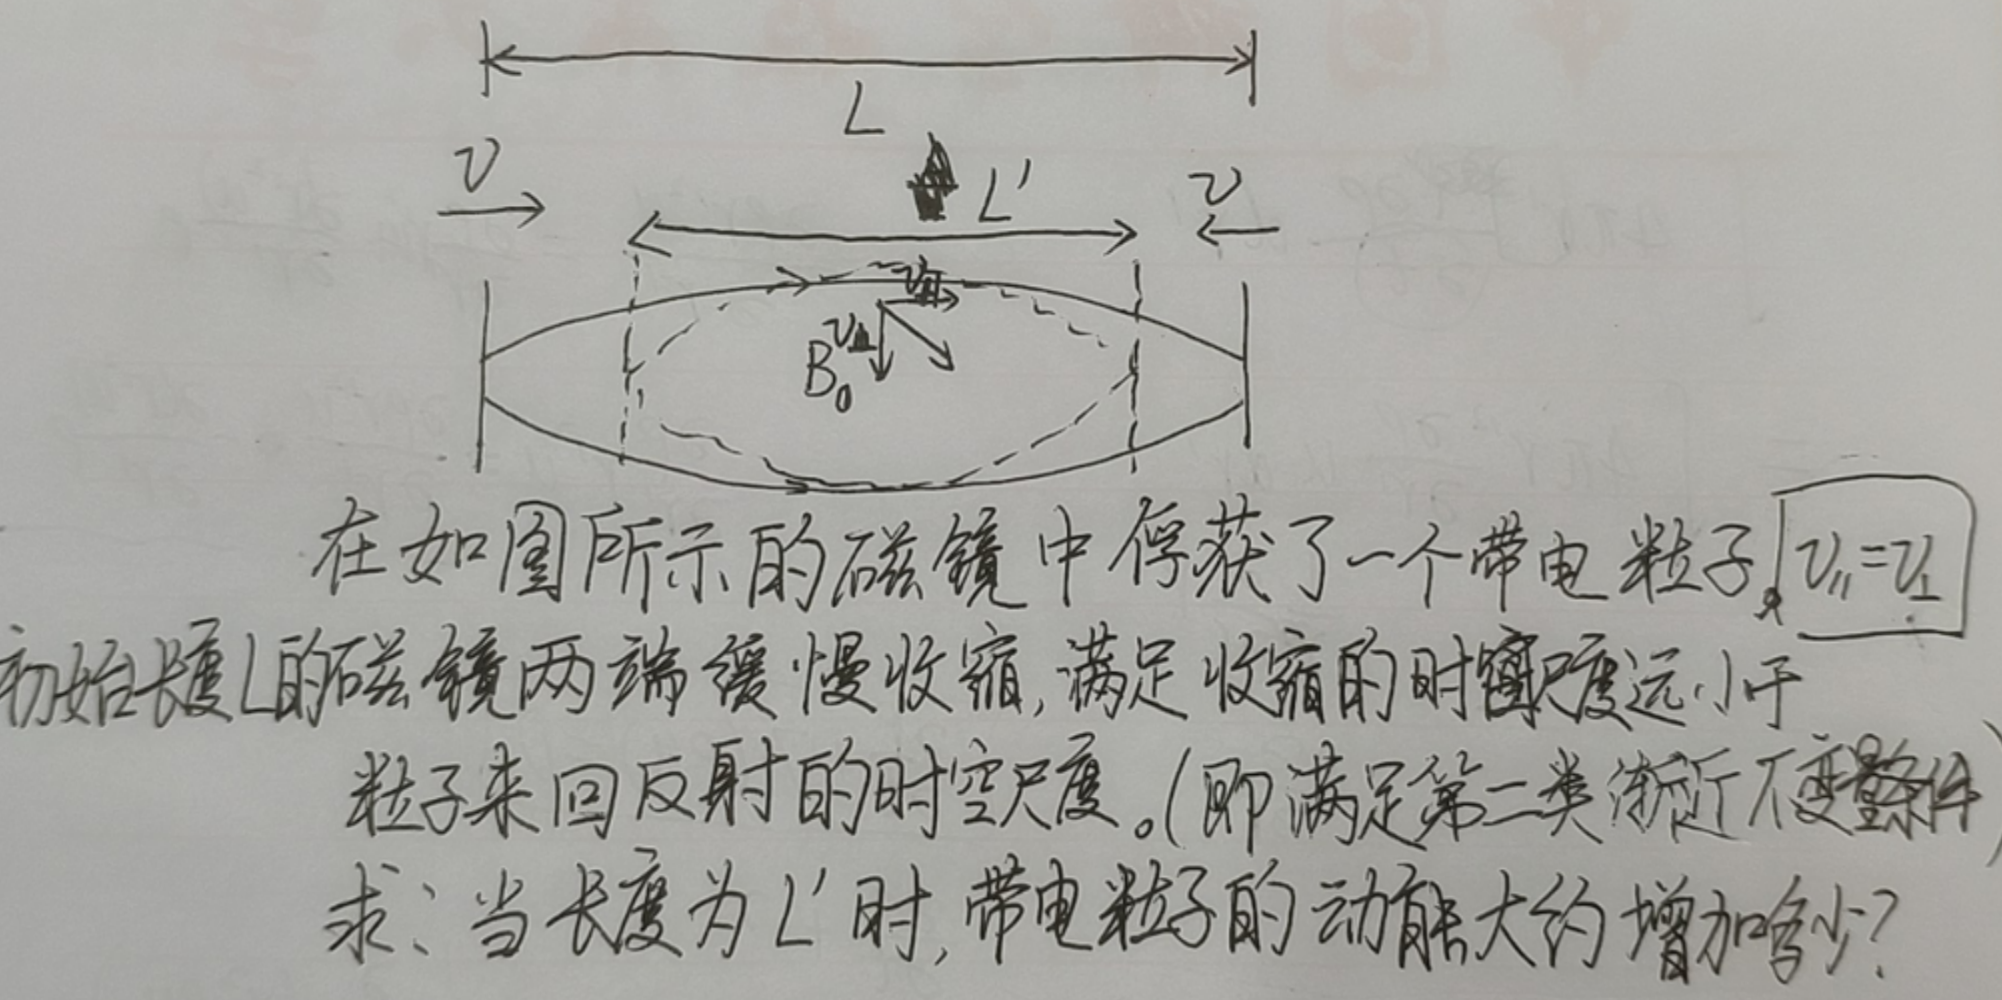 L
v L' v
v∥
v⊥
B₀
在如图所示的磁镜中俘获了一个带电粒子, v∥=v⊥
初始长度L的磁镜两端缓慢收缩,满足收缩的时空尺度远小于
粒子来回反射的时空尺度。(即满足第二类渐近不变量条件)
求:当长度为L'时,带电粒子的动能大约增加多少?